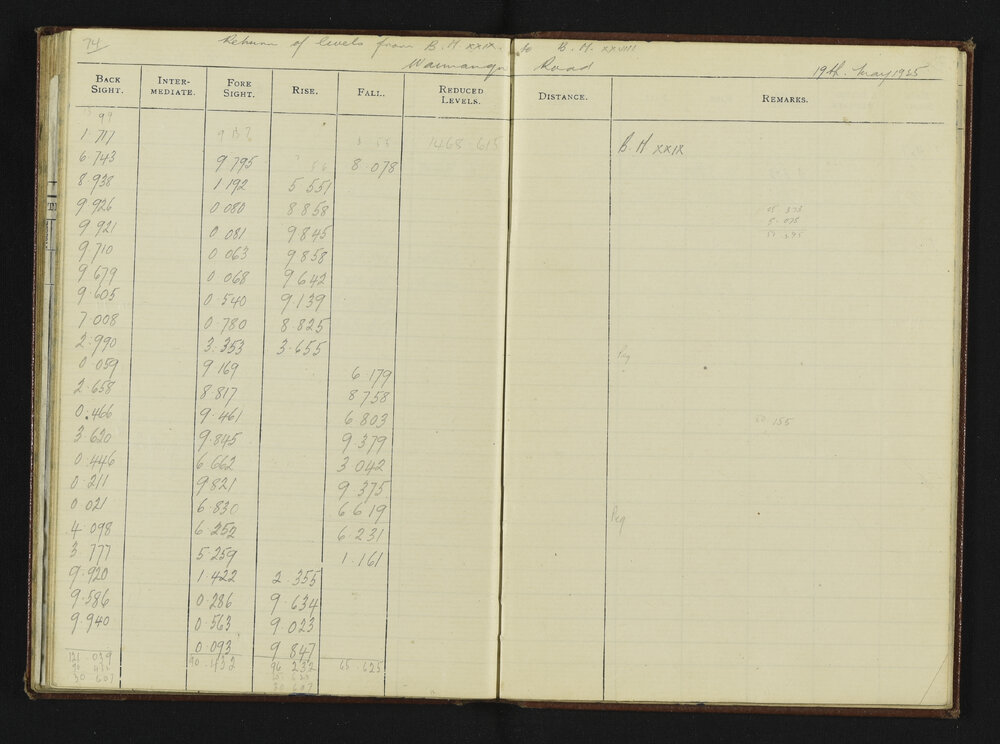 74 Return of levels from B.M XXIX. to B.M. XXVIII
Road 19th. May 1925
BACK SIGHT. INTER-MEDIATE. FORE SIGHT. RISE. FALL. REDUCED LEVELS. DISTANCE. REMARKS.
99
1.717 1468 615 B.M XXIX
6.743 9 795 8 078
8.938 1 192 5 551
9 926 0 080 8 858
9 921 0 081 9 845
9 710 0 063 9 858
9 679 0 068 9 642
9.605 0 540 9 139
7.008 0 780 8 825
2.990 3.353 3.655 Peg
0 059 9 169 6.179
2.658 8.817 8 758
0.466 9.461 6 803 155
3 620 9.845 9 379
0.446 6 662 3 042
0.211 9 821 9 375
0 021 6.830 6 619 Peg
4 098 6 252 6 231
3 777 5.259 1.161
9.920 1.422 2.355
9.586 0.286 9 634
9.940 0.563 9 023
0 093 9 847
121.039 90.432 96 232 65.625
30 607